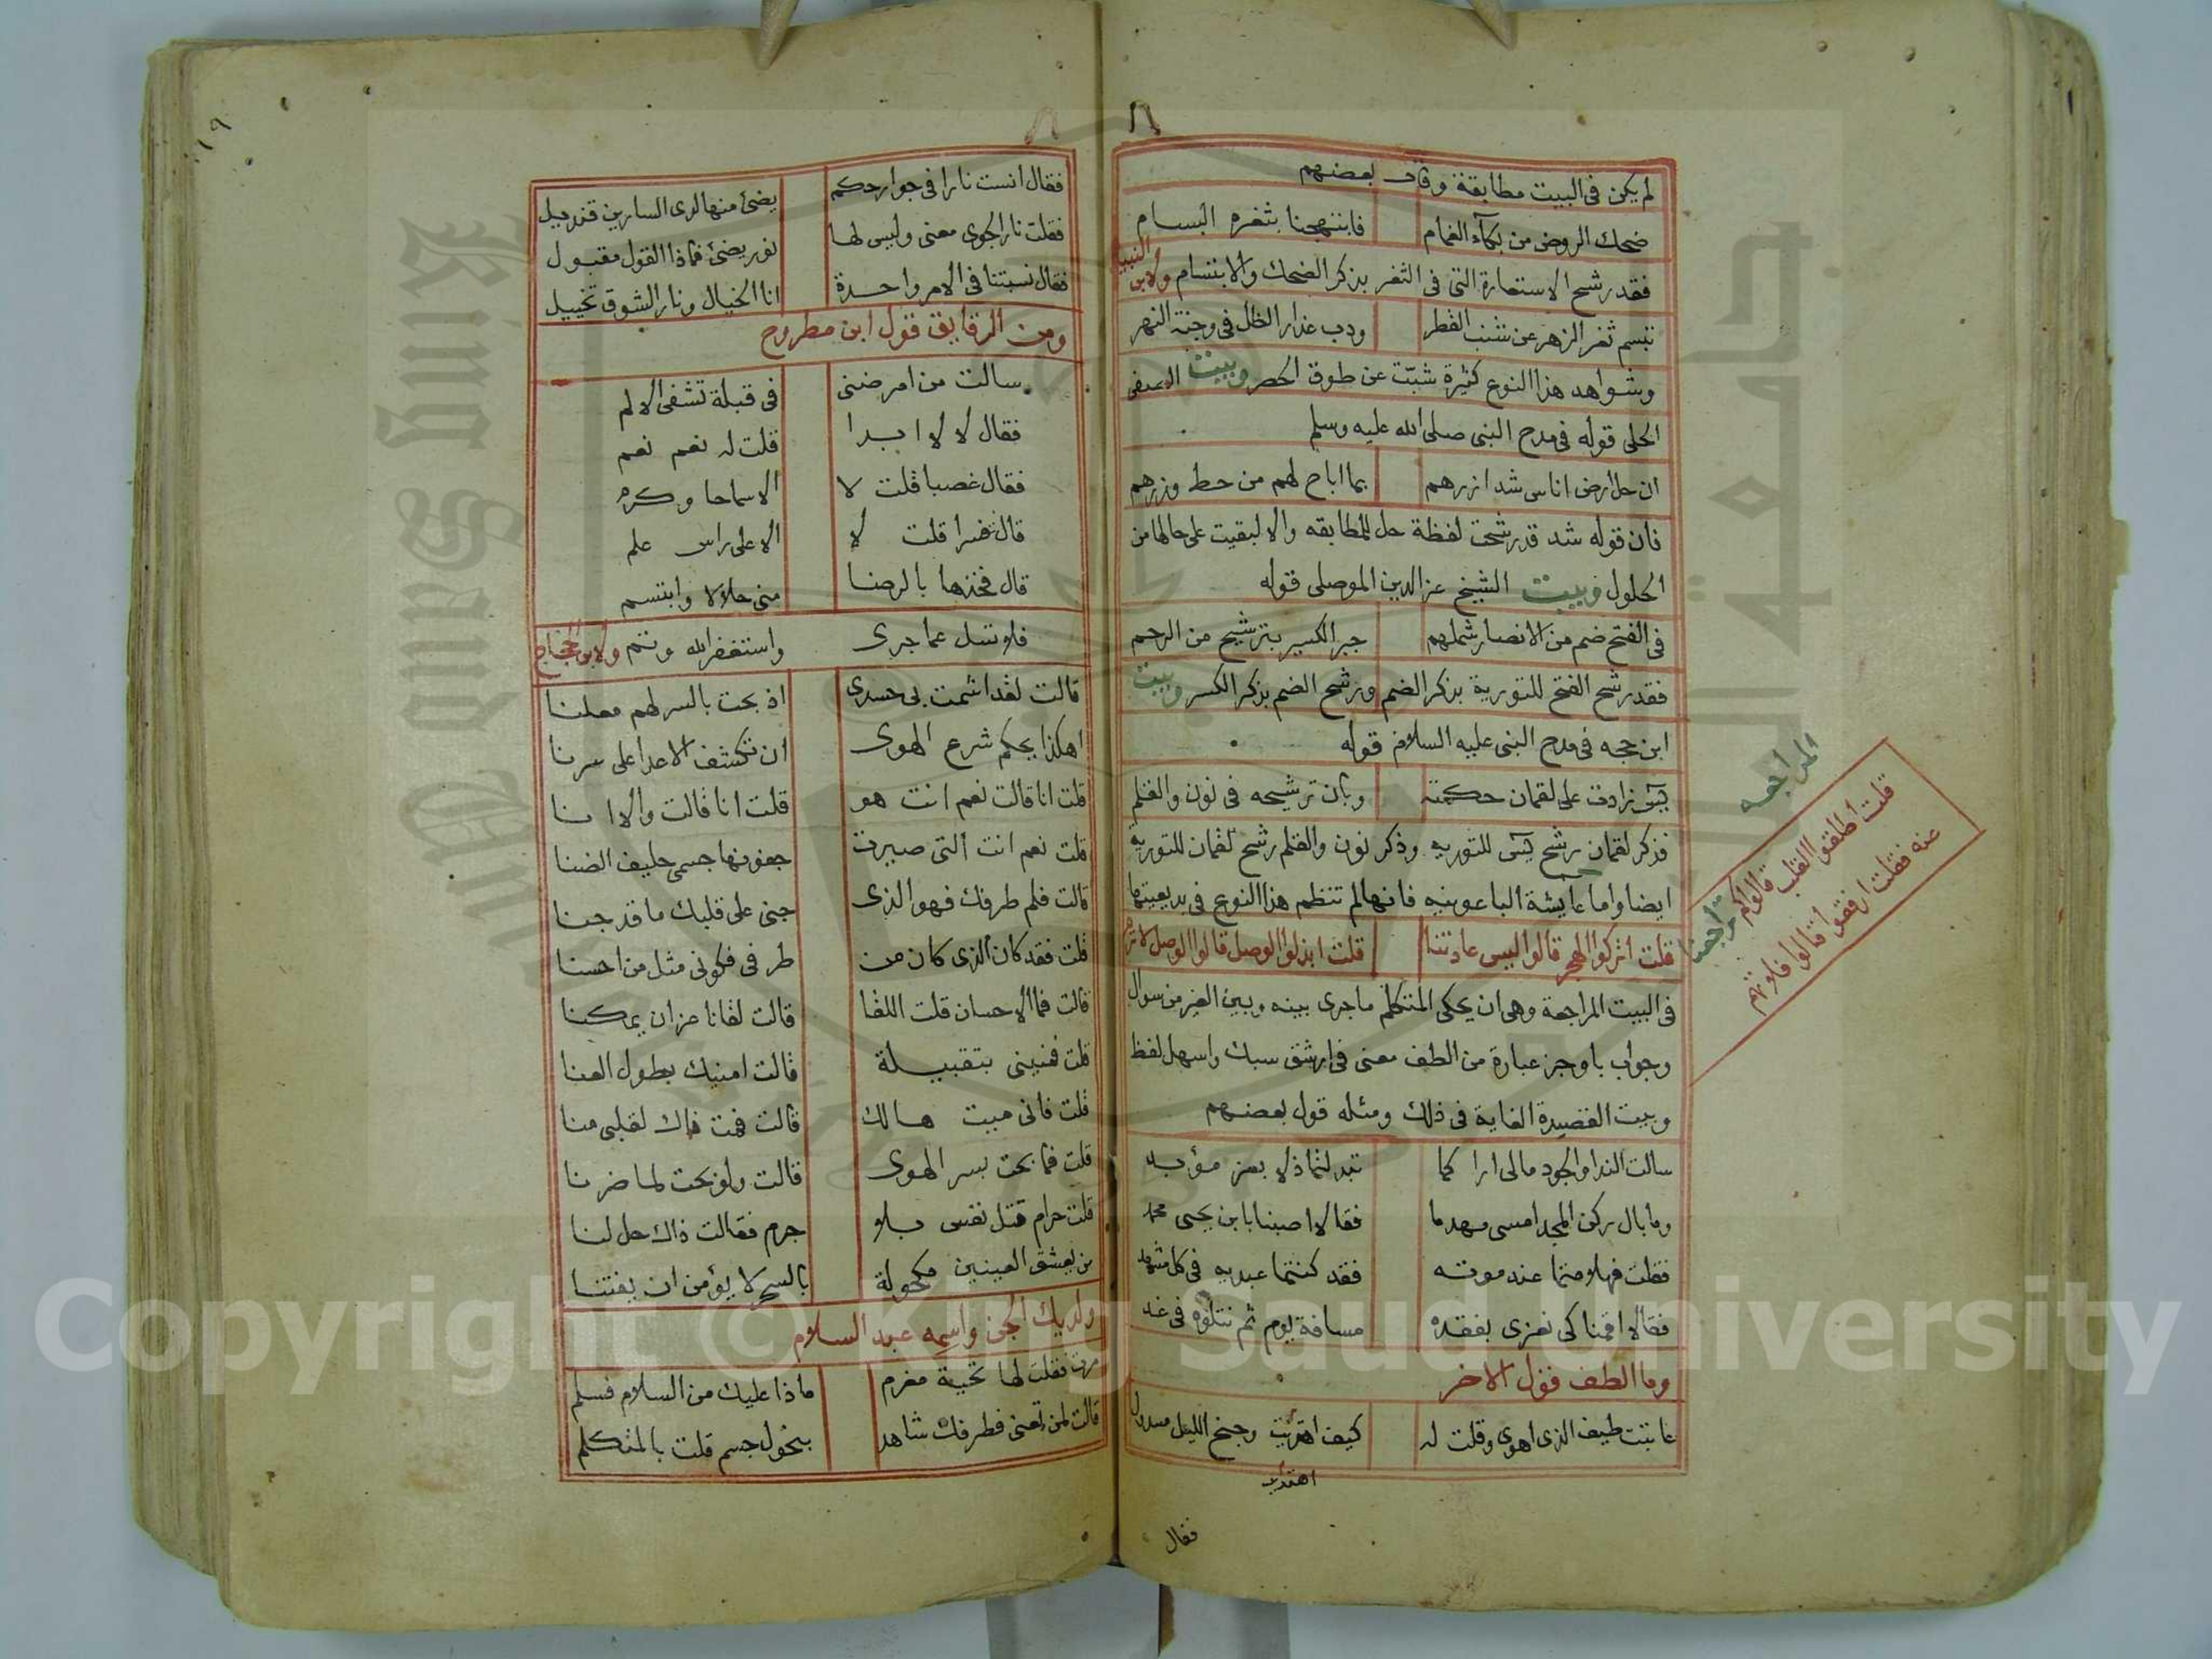 لم يكن فى البيت مطابقة وقال بعضهم
ضحك الروض من بكآء الغمام فابتهجنا بثغره البسام
فقد رشح الاستعارة التى فى الثغر بذكر الضحك والابتسام ولابن النبيه
تبسم ثغر الزهر عن شنب القطر ودب عذار الظل فى وجنة النهر
وشواهد هذا النوع كثيرة شبّت عن طوق الحصر وبيت الصفى
الحلى قوله فى مدح النبى صلى الله عليه وسلم
ان حل ارض اناس شد ازرهم بما اباح لهم من حط وزرهم
فان قوله شد قد رشحت لفظة حل للمطابقه والا لبقيت على حالها من
الحلول وبيت الشيخ عز الدين الموصلى قوله
فى الفتح ضم من الانصار شملهم جبر الكسير بترشيح من الرحم
فقد رشح الفتح للتورية بذكر الضم ورشح الضم بذكر الكسر وبيت
ابن حجه فى مدح النبى عليه السلام قوله
يسٓ زادت على لقمان حكمته وبان ترشيحه فى نون والقلم
فذكر لقمان رشح يسٓ للتوريه وذكر نون والقلم رشح لقمان للتورية
ايضا واما عايشة الباعونيه فانها لم تنظم هذا النوع فى بديعيتها
قلت اتركوا الهجر قالوا ليس عادتنا قلت ابذلوا الوصل قالوا الوصل لا ترم
فى البيت المراجعة وهى ان يحكى المتكلم ماجرى بينه وبين الغير من سوال
وجواب باوجز عبارة من الطف معنى فى ارشق سبك واسهل لفظ
وبيت القصيدة الغاية فى ذلك ومثله قول بعضهم
سالت الندا والجود مالى اراكما تبدلتما ذلا بعز مؤبد
وما بال ركن المجد امسى مهدما فقالا اصبنا بابن يحيى محمد
فقلت فهلا متما عند موته فقد كنتما عبديه فى كل مشهد
فقالا اقمنا كى نعزى بفقده مسافة يوم ثم نتلوه فى غد
وما الطف قول الاخر
عاتبت طيف الذى اهوى وقلت له كيف اهتديت وجنح الليل مسدول
اهتديت
فقال
المراجعه
قلت اطلقوا القلب قالوا كم تراجعنا
عنه فقلت ارفقوا قالوا فلا تهم
١٩
فقال انست نارا فى جوارحكم يضئ منها لدى السارين قنديل
فقلت نار الجوى معنى وليس لها نور يضئ فماذا القول مقبول
فقال نسبتنا فى الامر واحدة انا الخيال ونار الشوق تخييل
ومن الرقايق قول ابن مطروح
سالت من امرضنى فى قبلة تشفى الالم
فقال لا لا ابدا قلت له نعم نعم
فقال غصبا قلت لا الا سماحا وكرم
قال فسرا قلت لا الا على راس علم
قال فخذها بالرضا منى حلالا وابتسم
فلا تسل عما جرى واستغفر الله ونم ولابن حجاج
قالت لقد اشمت بى حسدى اذ بحت بالسر لهم معلنا
اهكذا يحكم شرع الهوى ان تكشف الاعدا على سرنا
قلت انا قالت نعم انت هو قلت انا قالت والا انا
قلت نعم انت التى صيرت جفونها جسمى حليف الضنا
قالت فلم طرفك فهو الذى جنى على قلبك ما قد جنا
قلت فقد كان الذى كان من طرفى فكونى مثل من احسنا
قالت فما الاحسان قلت اللقا قالت لقانا عز ان يمكنا
قلت فمنينى بتقبيلة قالت امنيك بطول العنا
قلت فانى ميت هالك قالت فمت ذاك لقلبى منا
قلت فما بحت بسر الهوى قالت ولو بحت لما ضرنا
قلت حرام قتل نفس بلا جرم فقالت ذاك حل لنا
من يعشق العينين مكحولة بالسحر لا يؤمن ان يفتنا
ولديك الجن واسمه عبد السلام
مرت فقلت لها تحية مغرم ماذا عليك من السلام فسلم
قالت لمن تعنى فطرفك شاهد بنحول جسم قلت بالمتكلم
Copyright © King Saud University